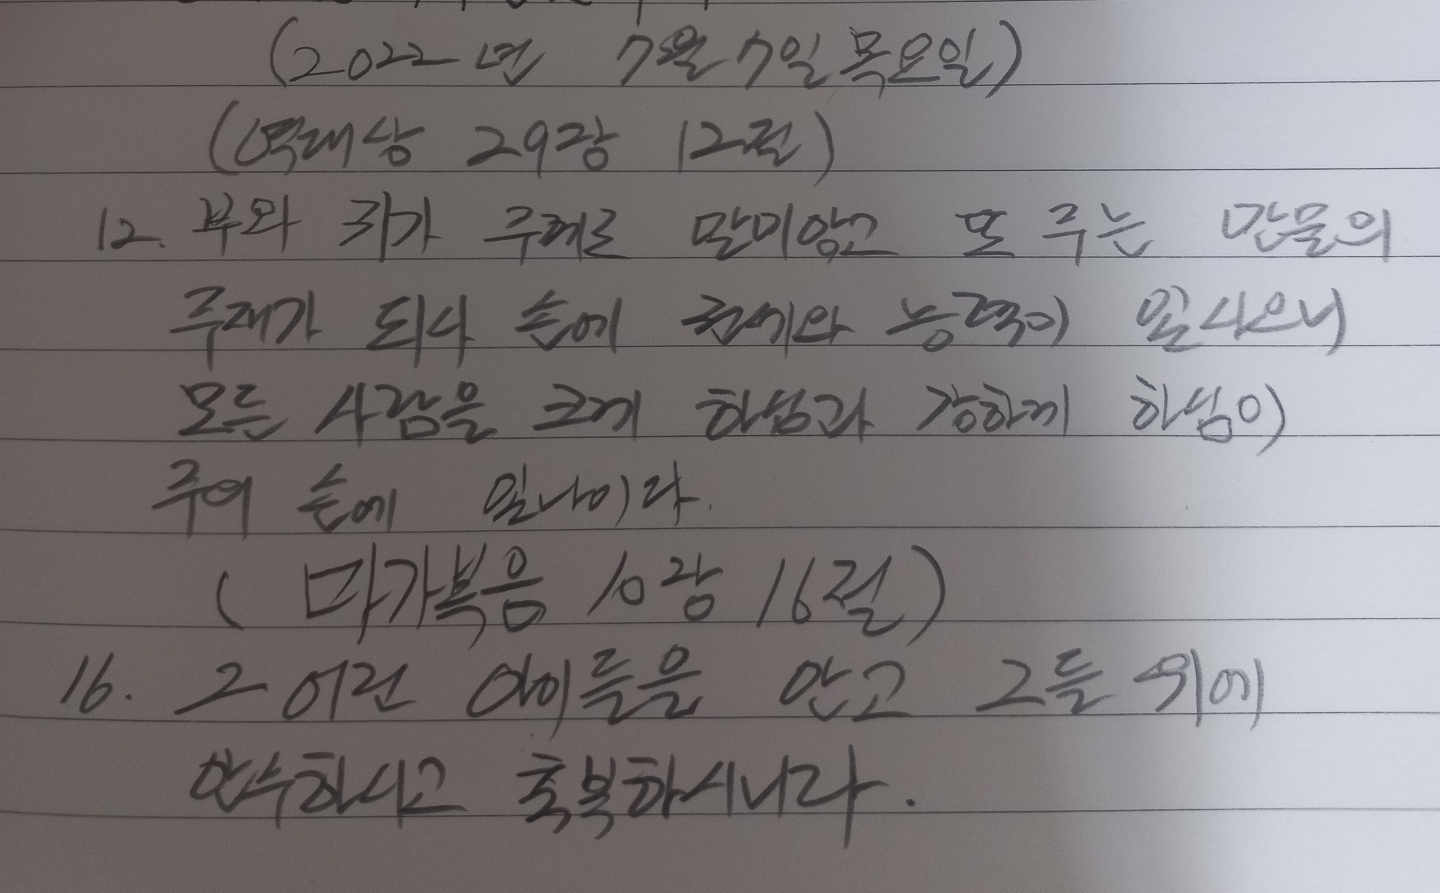 (2022년 7월 7일 목요일)
(역대상 29장 12절)
12. 부와 귀가 주께로 말미암고 또 주는 만물의
주재가 되사 손에 권세와 능력이 있사오니
모든 사람을 크게 하심과 강하게 하심이
주의 손에 있나이다.
(마가복음 10장 16절)
16. 그 어린 아이들을 안고 그들 위에
안수하시고 축복하시니라.